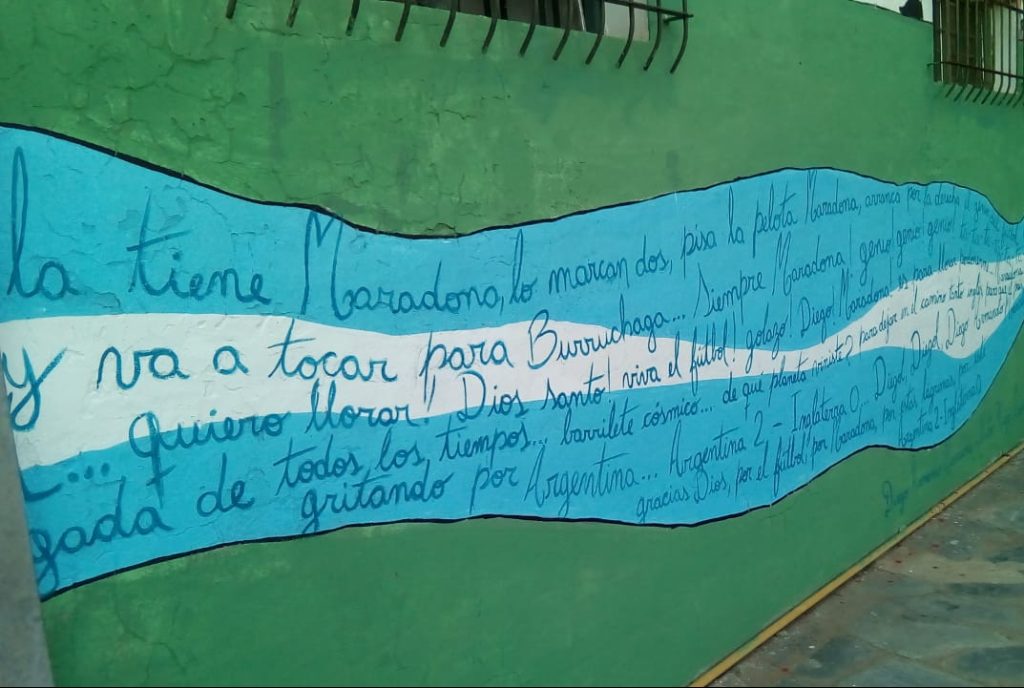 la tiene Maradona, lo marcan dos, pisa la pelota Maradona, arranca por la derecha el genio
y va a tocar para Burruchaga... Siempre Maradona! genio! genio! genio! ta-ta-ta
... quiero llorar! Dios santo! viva el fútbol! golazo! Diego! Maradona! es para llorar
gada de todos los tiempos... barrilete cósmico... de qué planeta viniste? para dejar en el camino tanto inglés para que el
gritando por Argentina... Argentina 2 - Inglaterra 0... Diegol, Diegol, Diego Armando
gracias Dios, por el fútbol, por Maradona, por estas lágrimas, por este
Argentina 2- Inglaterra 0